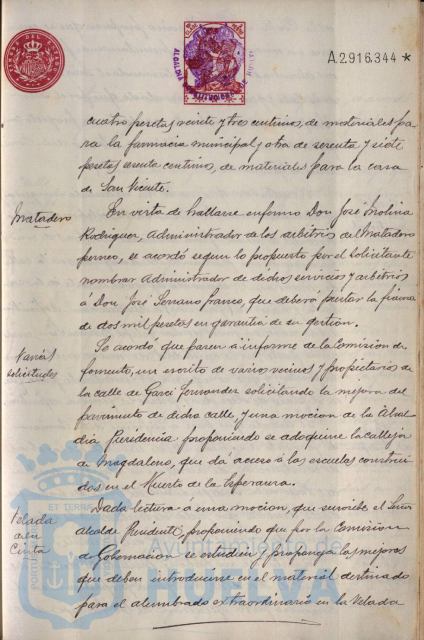 A.2.916.344 *
cuatro pesetas veinte y tres centimos, de materiales pa-
ra la farmacia municipal y otra de setenta y siete
pesetas setenta centimos, de materiales para la casa
de San Vicente.
Matadero
En virtud de hallarse enfermo Don José Molina
Rodriguez, Administrador de los arbitrios del Matadero
porneo, se acordó segun lo propuesto por el solicitante
nombrar Administrador de dichos servicios y arbitrios
á Don José Serrano Franco, que deberá prestar la fianza
de dos mil pesetas en garantia de su gestion.
Varias
solicitudes
Se acordó que pasen á informe de la Comision de
fomento, un escrito de varios vecinos y propietarios de
la calle de Garci Fernandez solicitando la mejora del
pavimento de dicha calle, y una mocion de la Alcal-
dia Presidencia proponiendo se adoquine la calleja
de Magdalena, que dá acceso á las escuelas construi-
das en el Huerto de la Esperanza.
Velada
de la
Cinta
Dada lectura á una mocion, que suscribe el Señor
Alcalde Presidente, proponiendo que por la Comision
de Gobernacion se estudien y propongan las mejoras
que deban introducirse en el material destinado
para el alumbrado extraordinario en la Velada
Ayuntamiento de
HUELVA